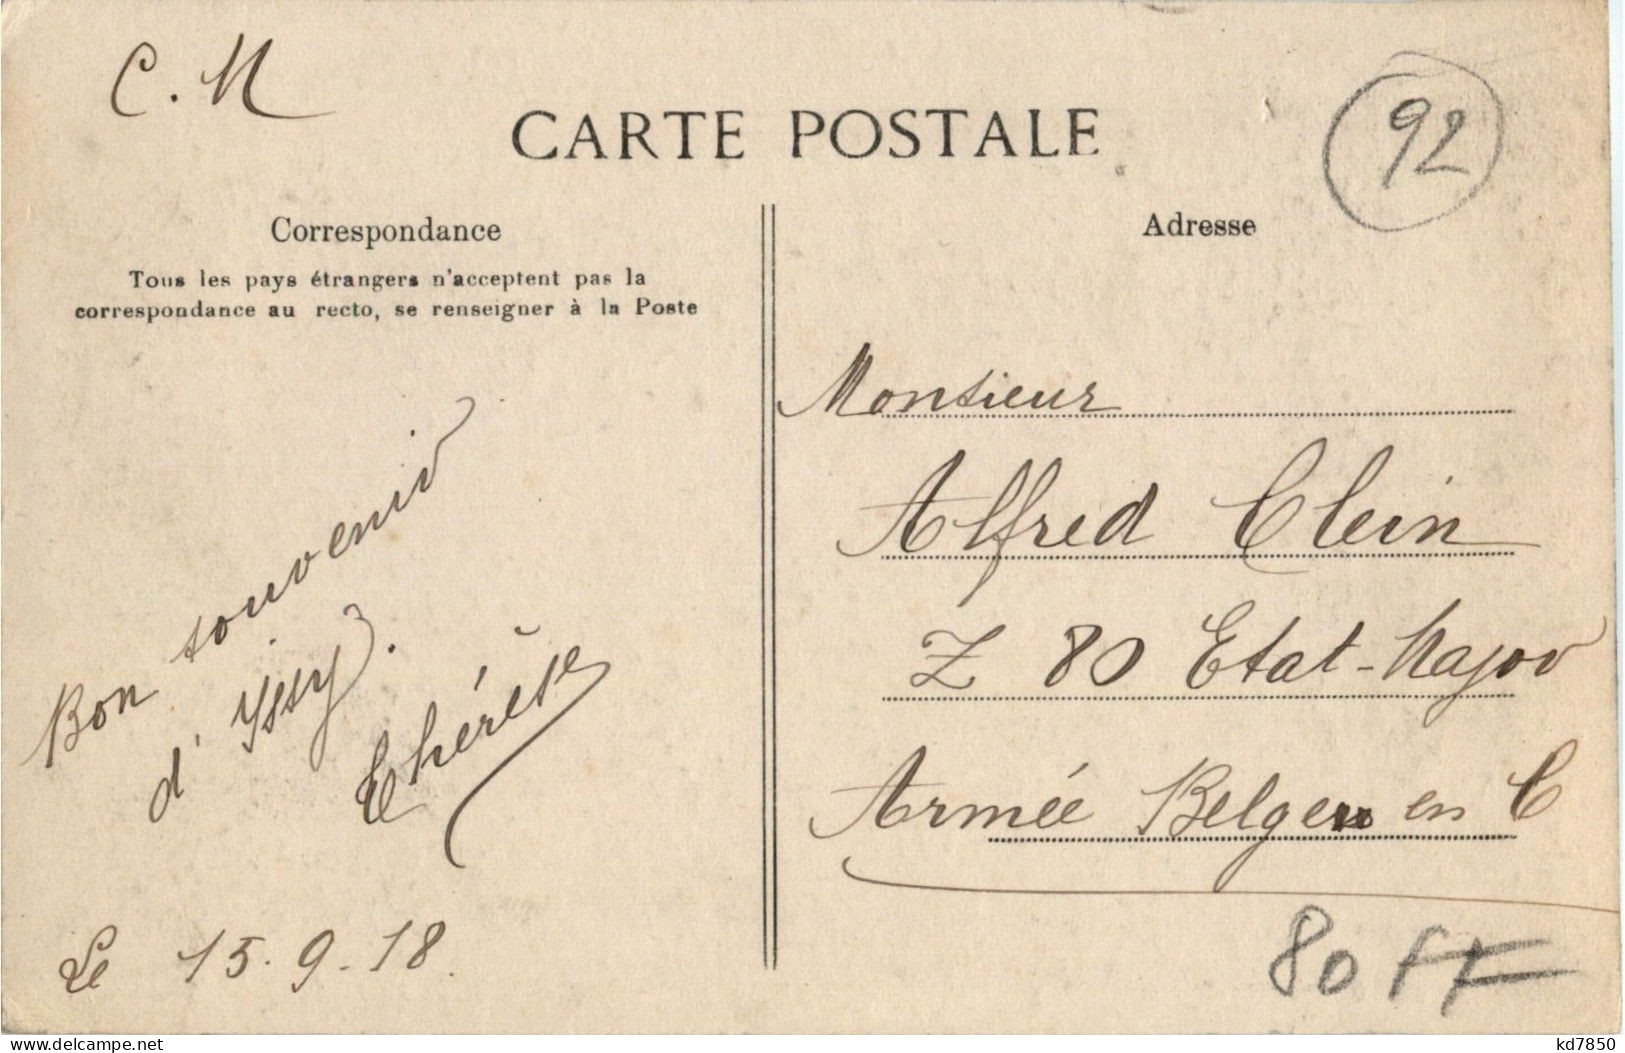 C. M
CARTE POSTALE
92
Correspondance
Tous les pays étrangers n'acceptent pas la
correspondance au recto, se renseigner à la Poste
Bon souvenir
d'Issy.
Thérèse
Le 15.9.18.
Adresse
Monsieur
Alfred Clein
Z 80 Etat-Major
Armée Belge en C
80 FF
delcampe.net
kd7850